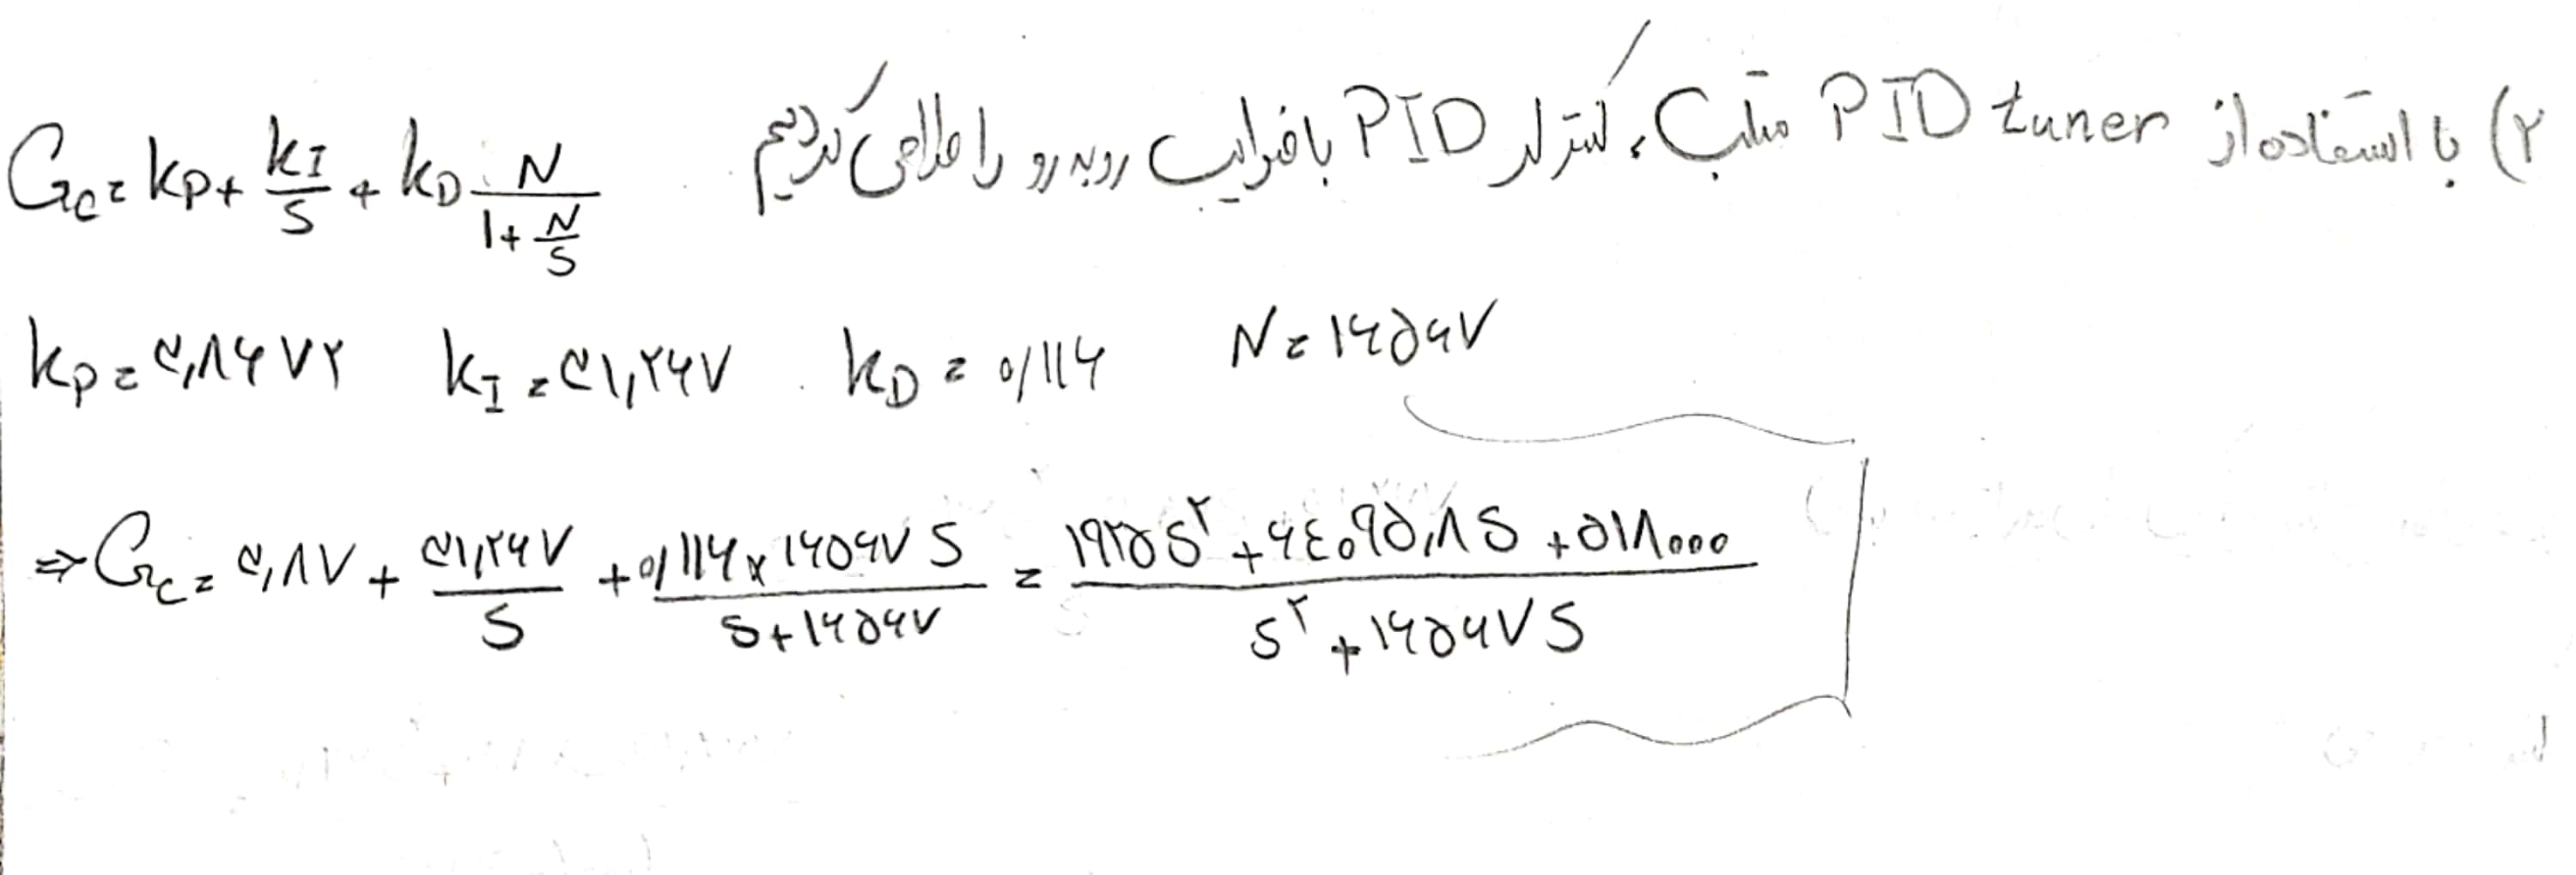 ۲) با استفاده از PID tuner متلب، کنترلر PID با ضرایب روبه رو را طراحی کردیم G_C = k_P + k_I/S + k_D N/(1 + N/S)
k_P = ۳,۸۶۷۲ k_I = ۳۱,۲۶۷ k_D = ۰/۱۱۶ N = ۱۶۵۶۷
⇒ G_C = ۳,۸۷ + ۳۱,۲۶۷/S + (۰/۱۱۶ × ۱۶۵۶۷ S)/(S + ۱۶۵۶۷) = (۱۹۲۵ S^۲ + ۶۴۰۹۵,۸ S + ۵۱۸۰۰۰)/(S^۲ + ۱۶۵۶۷ S)